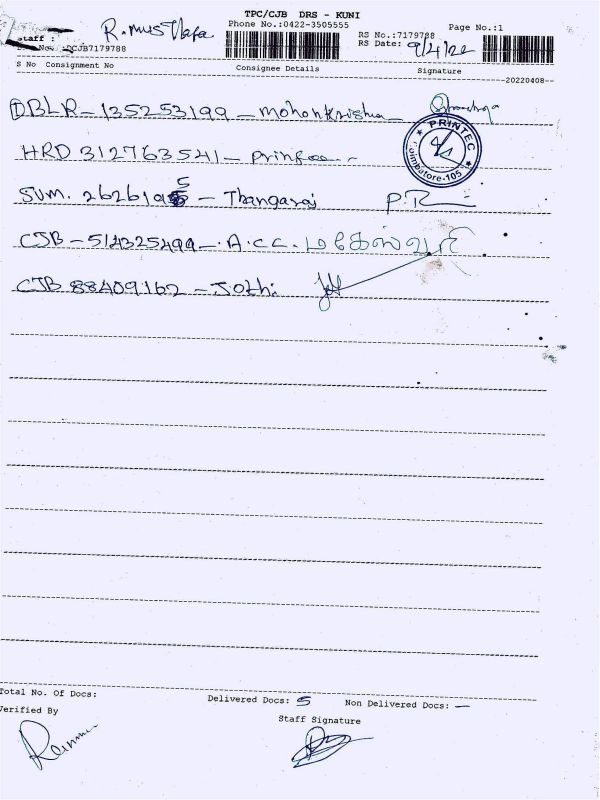 TPC/CJB DRS - KUNI
Phone No.:0422-3505555
Page No.:1
Staff : R. Mustafa
RS No.:7179788
No. :DCJB7179788
RS Date: 9/4/22
S No Consignment No Consignee Details Signature
20220408
① BLR - 135253199 - mohankrishna
PRINTEC
Coimbatore-105
HRD 312763541 - Printec
SUM. 262619 - Thangaraj P.R
CJB - 514325499 - A.C.C. மகேஸ்வரி
CJB 88409162 - Jothi
Total No. Of Docs:
Delivered Docs: 5 Non Delivered Docs: —
Verified By
Staff Signature